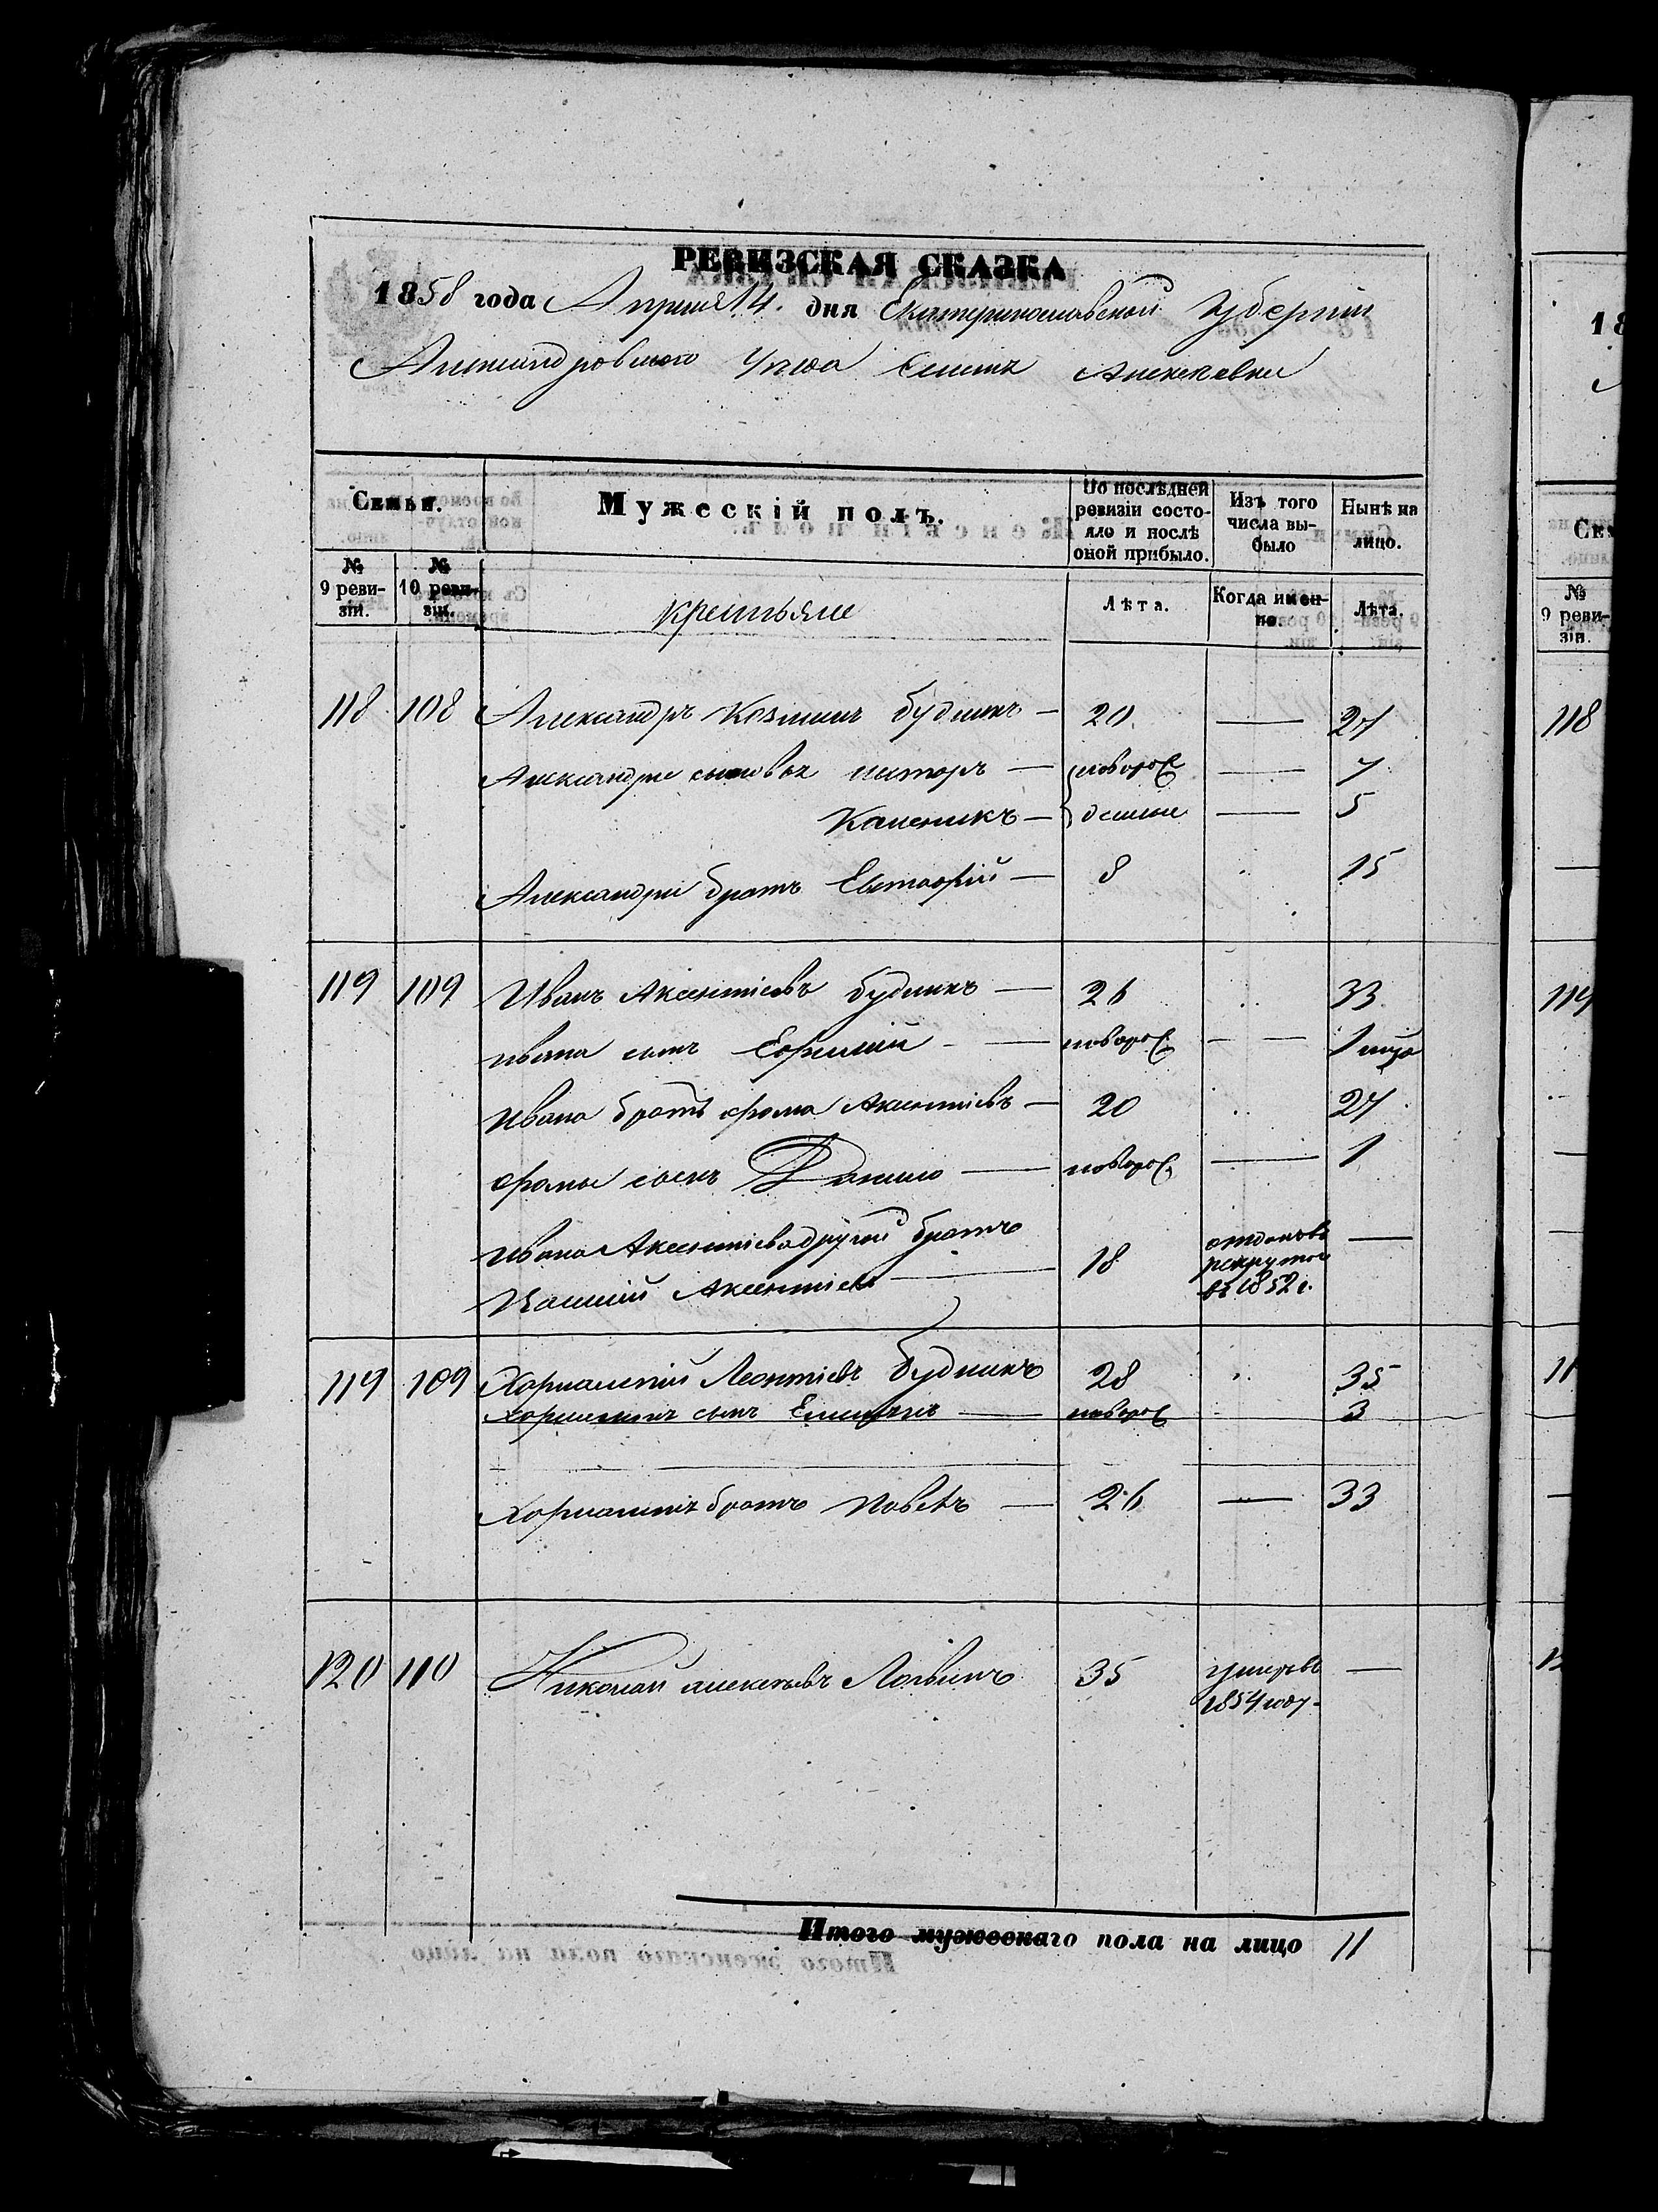 РЕВИЗСКАЯ СКАЗКА
1858 года Апреля 14. дня Екатеринославской Губернии
Александровского Уезда Алексеевки
Семьи.
Мужескій полъ.
По последней ревизіи состояло и после оной прибыло.
Изъ того числа выбыло
Ныне на лицо.
№ 9 ревизіи.
№ 10 ревизіи.
крестьяне
Лѣта.
Когда именно.
Лѣта.
118 108 Александръ Козминъ будникъ — 20 — 27
Александра сыновья — новорож — 7
— денные — 5
Александра братъ Евстафій — 8 15
119 109 Иванъ Аксентіевъ будникъ — 26 33
ивана сынъ — новорож — 1
ивана братъ фома Аксентіевъ — 20 27
фомы сынъ Данило — новорож — 1
ивана Аксентіева другой братъ
Аксентіевъ — 18 отданъ въ рекруты въ 1852 г. —
119 109 Харлампій Леонтіевъ будникъ 28 35
сынъ — новорож 3
братъ Павелъ — 26 — 33
120 110 Николай алексеевъ Логвинъ 35 умеръ въ 1854 году. —
Итого мужескаго пола на лицо 11
18
Сем
№ 9 ревизіи.
118
119
11